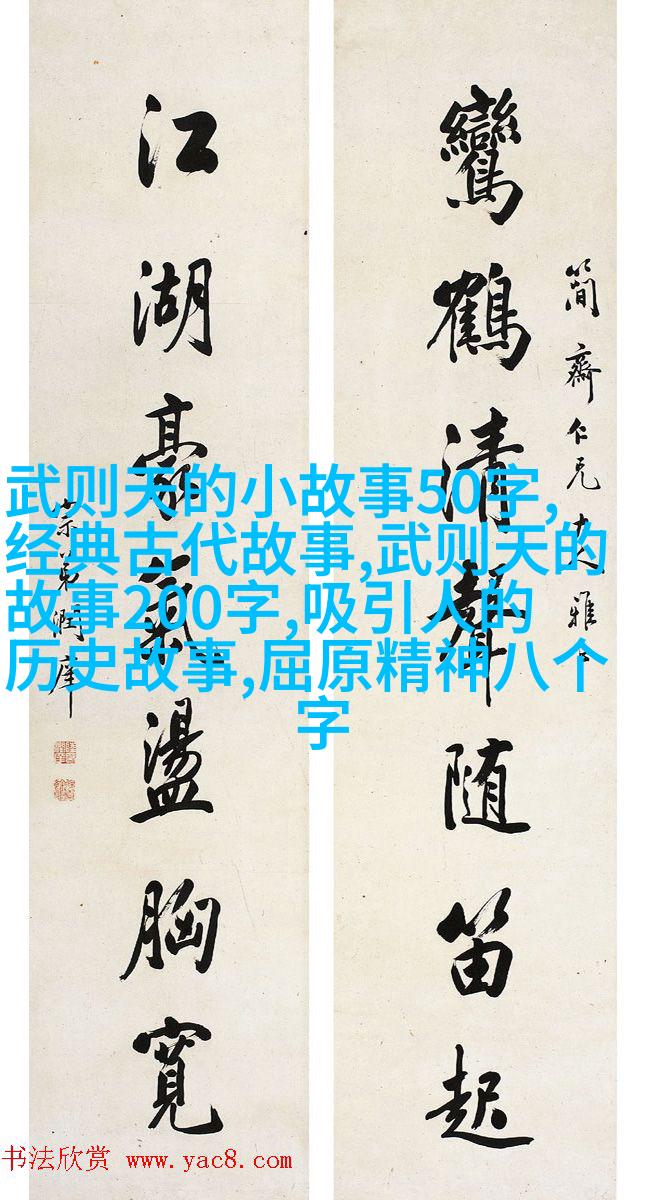 簡齋仁兄大雅
鸞鶴清聲随笛起
江湖豪氣盪胸寬
宗弟潤庠
武则天的小故事50字,
经典古代故事,武则天的
故事200字,吸引人的
历史故事,屈原精神八个
字
书法欣赏 www.yac8.com